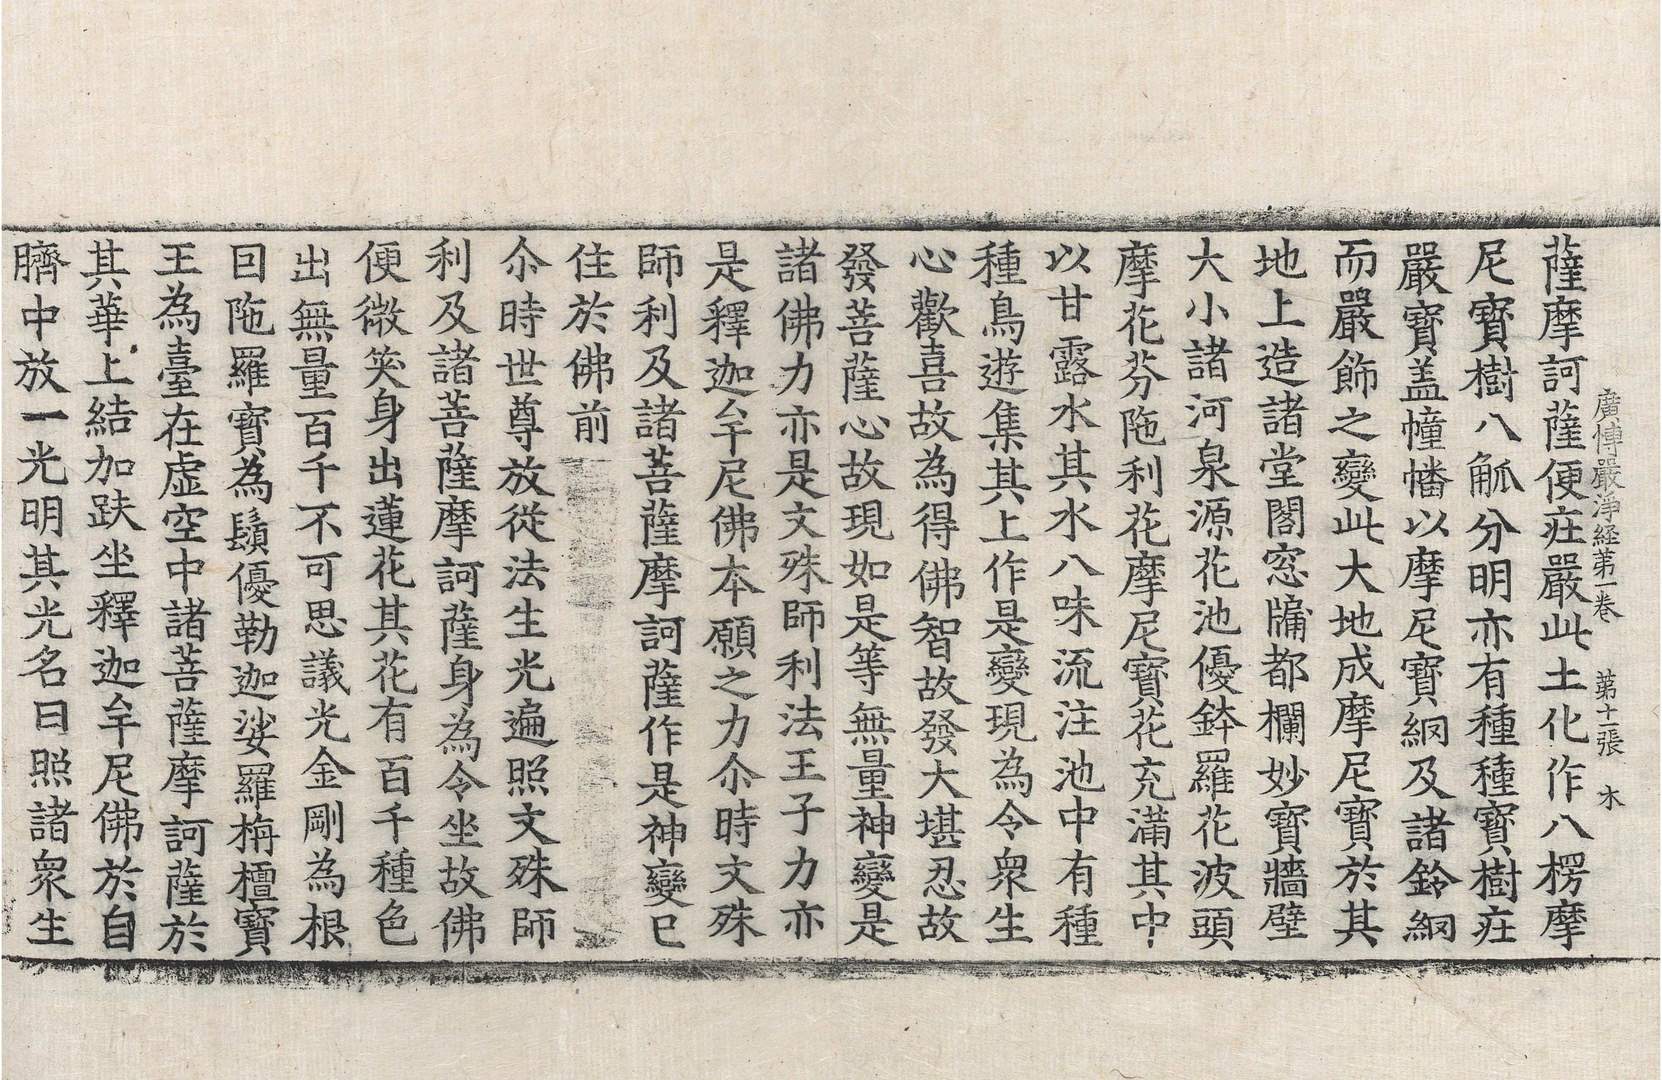 廣博嚴淨経第一卷 第十一張 木
薩摩訶薩便庄嚴此土化作八楞摩
尼寶樹八觚分明亦有種種寶樹庄
嚴寶盖幢幡以摩尼寶網及諸鈴網
而嚴飾之變此大地成摩尼寶於其
地上造諸堂閣窓牖都欄妙寶牆壁
大小諸河泉源花池優鉢羅花波頭
摩花芬陁利花摩尼寶花充滿其中
以甘露水其水八味流注池中有種
種鳥遊集其上作是變現為令衆生
心歡喜故為得佛智故發大堪忍故
發菩薩心故現如是等無量神變是
諸佛力亦是文殊師利法王子力亦
是釋迦牟尼佛本願之力尒時文殊
師利及諸菩薩摩訶薩作是神變已
住於佛前
尒時世尊放從法生光遍照文殊師
利及諸菩薩摩訶薩身為令坐故佛
便微笑身出蓮花其花有百千種色
出無量百千不可思議光金剛為根
因陁羅寶為鬚優勒迦娑羅栴檀寶
王為臺在虛空中諸菩薩摩訶薩於
其華上結加趺坐釋迦牟尼佛於自
臍中放一光明其光名曰照諸衆生